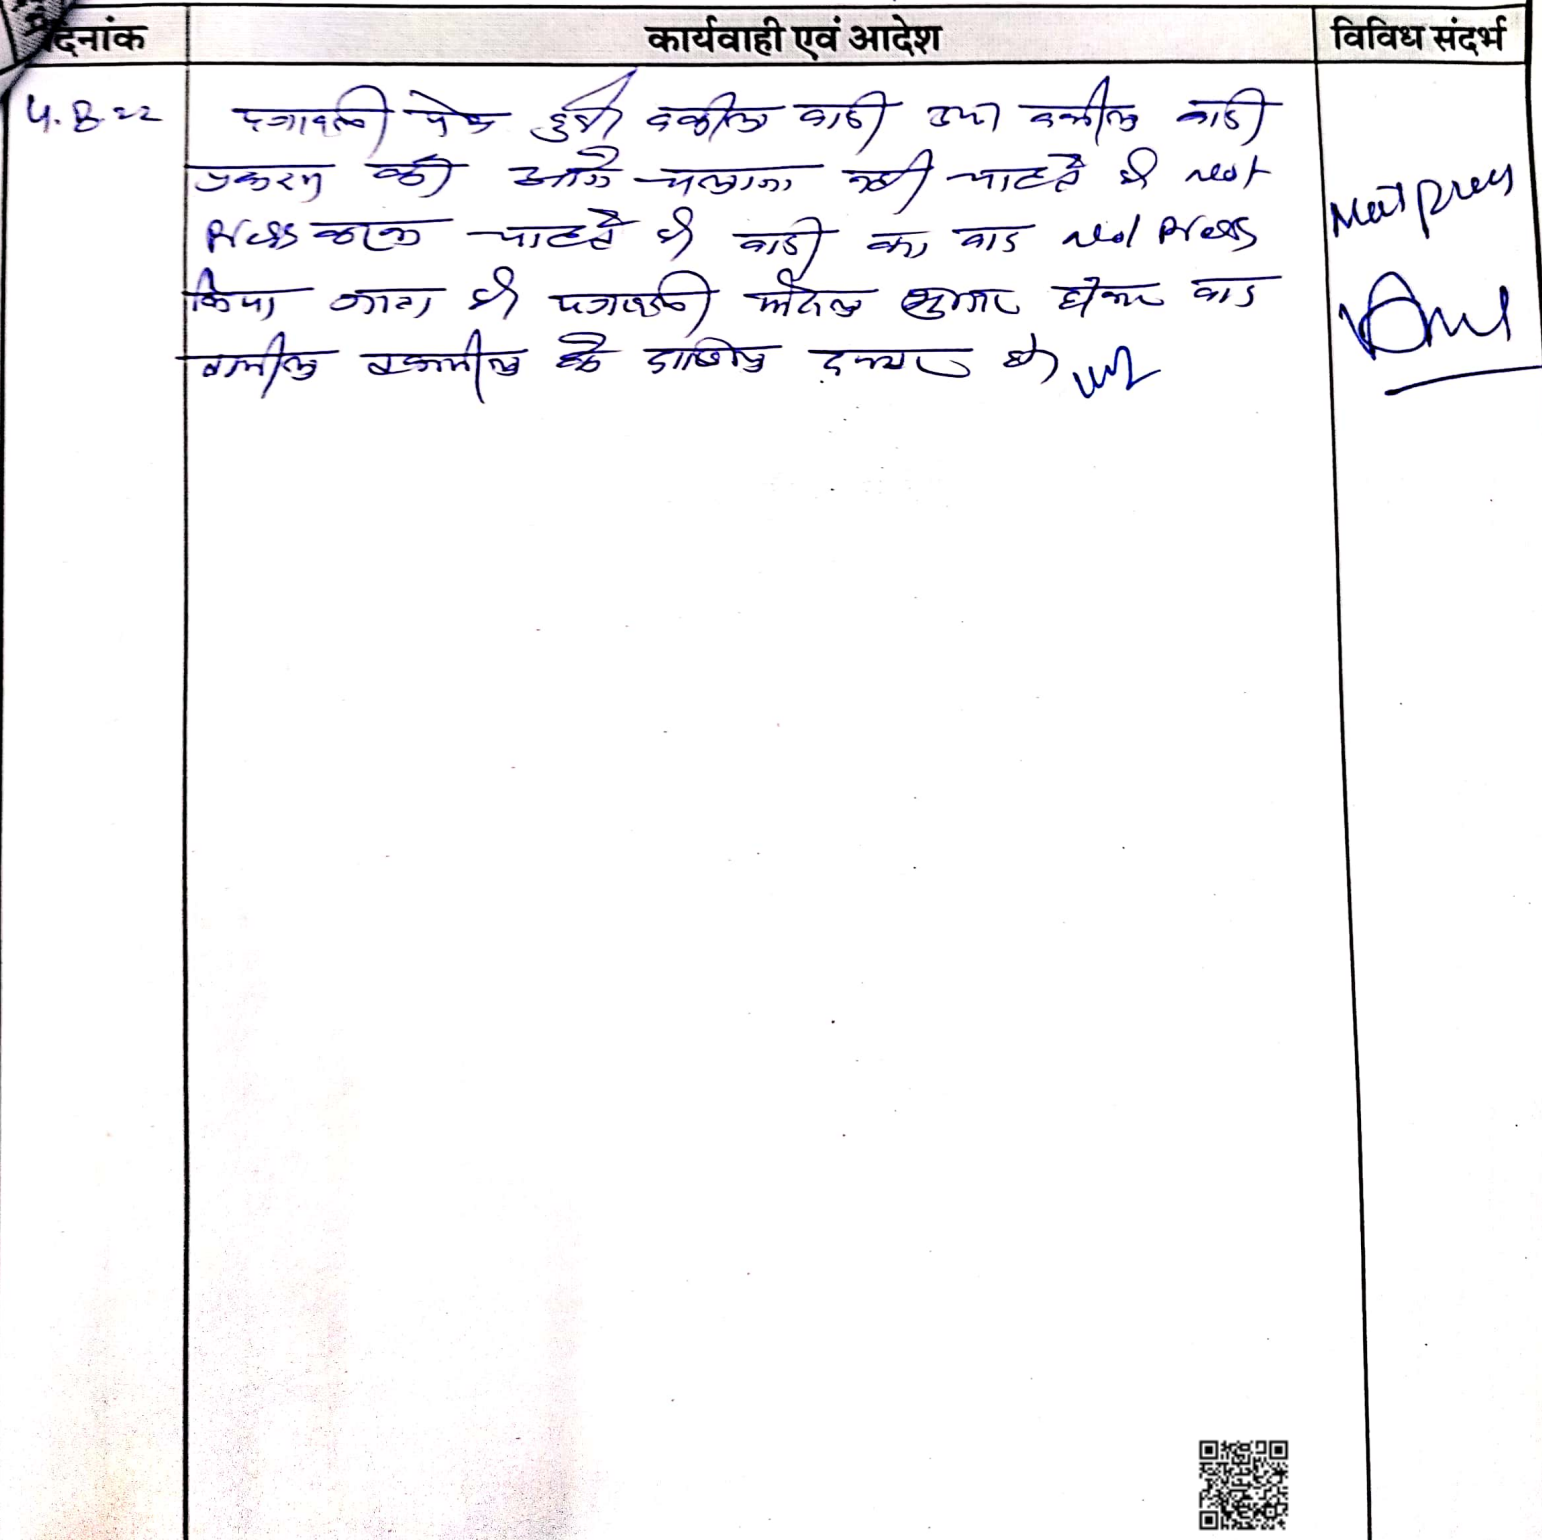 दिनांक कार्यवाही एवं आदेश विविध संदर्भ
4.8.22 पत्रावली पेश हुई वकील वादी उप। वकील वादी
प्रकरण को आगे चलाना नही चाहते है not
Press करना चाहते है वादी का वाद not Press
किया जाता है पत्रावली फैसल शुमार होकर बाद
तकमील के दाखिल दफ्तर हो
Not press